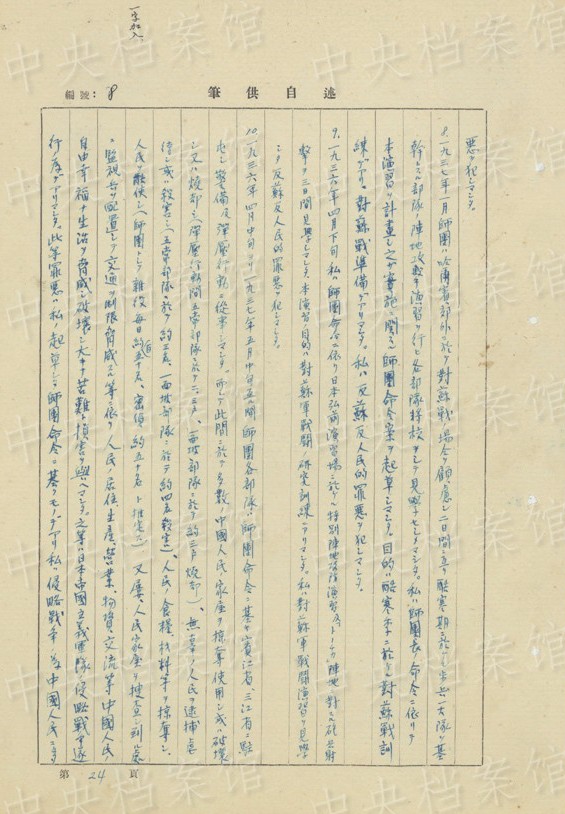 一字加入
編號：8
述自供筆
悪ヲ犯シマシタ。
8.一九三七年一月師團ハ哈爾賓郊外ニ於テ對蘇戰ノ場合ヲ顧慮シ二日間ニ亘リ酷寒期ニ於ケル歩兵一大隊ヲ基
幹トスル部隊ノ陣地攻撃ノ演習ヲ行ヒ各部隊将校ヲシテ見學セシメマシタ。私ハ師團長ノ命令ニ依リテ
本演習ヲ計畫シ之ガ実施ニ関スル師團命令案ヲ起草シマシタ。目的ハ酷寒季ニ於ケル對蘇戰訓
練デアリ、對蘇戰準備デアリマシタ。私ハ反蘇反人民的罪悪ヲ犯シマシタ。
9.一九三六年四月下旬私ハ師團命令ニ依リ日本弘前演習場ニ於ケル特別陣地攻撃演習「トーチカ」陣地ニ對スル砲兵射
撃ヲ三日間見學シマシタ。本演習ノ目的ハ對蘇軍戰闘ノ研究訓練ニアリマシタ。私ハ對蘇軍戰闘演習ヲ見學
シテ反蘇反人民的罪悪ヲ犯シマシタ。
10.一九三六年四月中旬ヨリ一九三七年五月中旬ノ間師團各部隊ハ師團命令ニ基キ賓江省、三江省ニ駐
屯シ警備及彈壓行動ニ從事シマシタ。而シテ此間ニ於テ多數ノ中國人民ノ家屋ヲ掠奪使用シ或ハ破壞
シ又ハ燒却シ（彈壓行動間五常部隊ニ於テ二、三戸、一面坡部隊ニ於テ約三戸燒却）、無辜ノ人民ヲ逮捕シ虐
待シ或ハ殺害シ（五常部隊ニ於テ約三名、一面坡部隊ニ於テ約四名殺害）、人民ノ食糧、材料等ヲ掠奪シ、
人民ヲ酷使シ（師團トシテ雜役毎日約百五十名、密偵約五十名ト推定ス）又屡人民ノ家屋ヲ捜査シ到ル處
ニ監視兵ヲ配置シテ交通ヲ制限脅威スル等ニ依リ人民ノ居住、生産、營業、物資ノ交流等中國人民ノ
自由幸福ナ生活ヲ脅威シ破壞シ大キナ苦難ト損害ヲ與ヘマシタ。之等ハ日本帝國主義軍隊ノ侵略戰争遂
行ノ為デアリマシタ。此等罪悪ハ私ノ起草シタ師團命令ニ基クモノデアリ私ハ侵略戰争ノ為中國人民ニ對シ
第24頁
中央档案馆